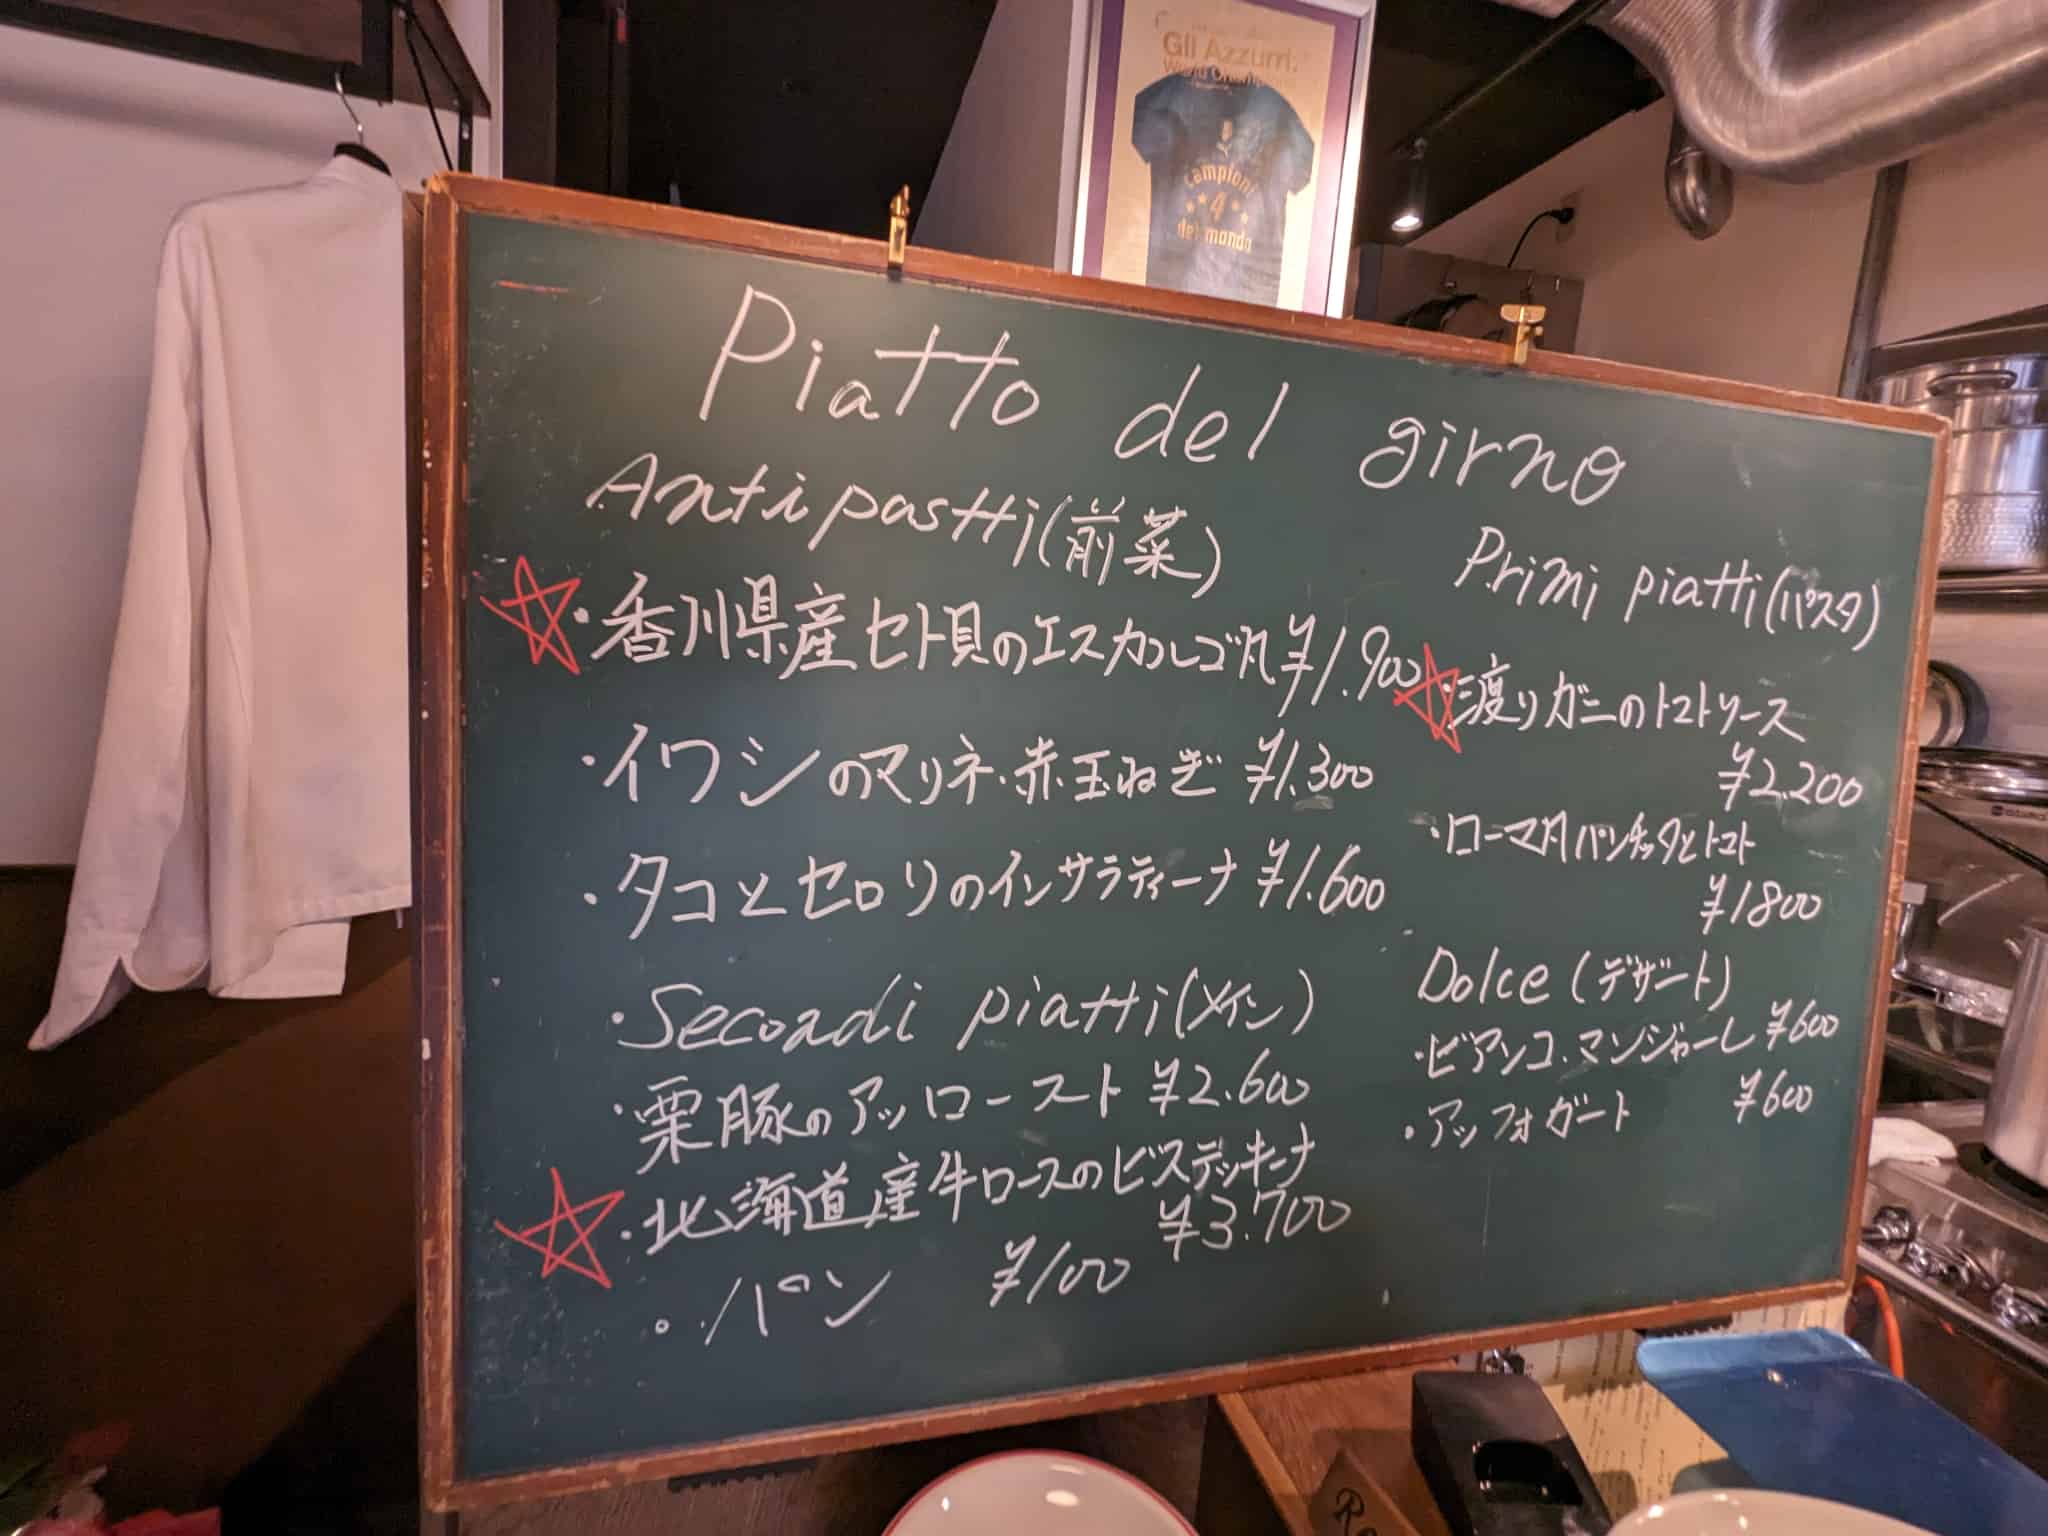 Gli Azzurri:
Campioni
4
del mondo
Piatto del girno
Antipastti(前菜)
・香川県産セト貝のエスカルゴ風 ¥1.900
・イワシのマリネ・赤玉ねぎ ¥1.300
・タコとセロリのインサラティーナ ¥1.600
・Secondi piatti(メイン)
・栗豚のアッロースト ¥2.600
・北海道産牛ロースのビステッキーナ
¥3.700
。パン ¥100
Primi piatti(パスタ)
・渡りガニのトマトソース
¥2.200
・ローマ風パンチッタとトマト
¥1800
Dolce(デザート)
・ビアンコ・マンジャーレ ¥600
・アッフォガート ¥600